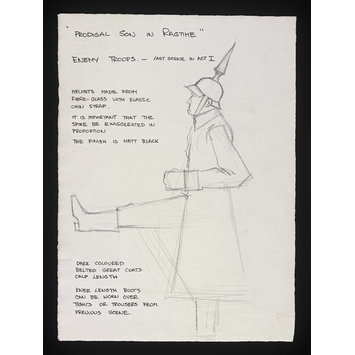 "PRODIGAL SON IN RAGTIME"
ENEMY TROOPS. — LAST SCENE IN ACT I
HELMETS MADE FROM
FIBRE-GLASS WITH ELASTIC
CHIN STRAP.
IT IS IMPORTANT THAT THE
SPIKE BE EXAGGERATED IN
PROPORTION
THE FINISH IS MATT BLACK
DARK COLOURED
BELTED GREAT COATS
CALF LENGTH
KNEE LENGTH BOOTS
CAN BE WORN OVER
TIGHTS OR TROUSERS FROM
PREVIOUS SCENE.